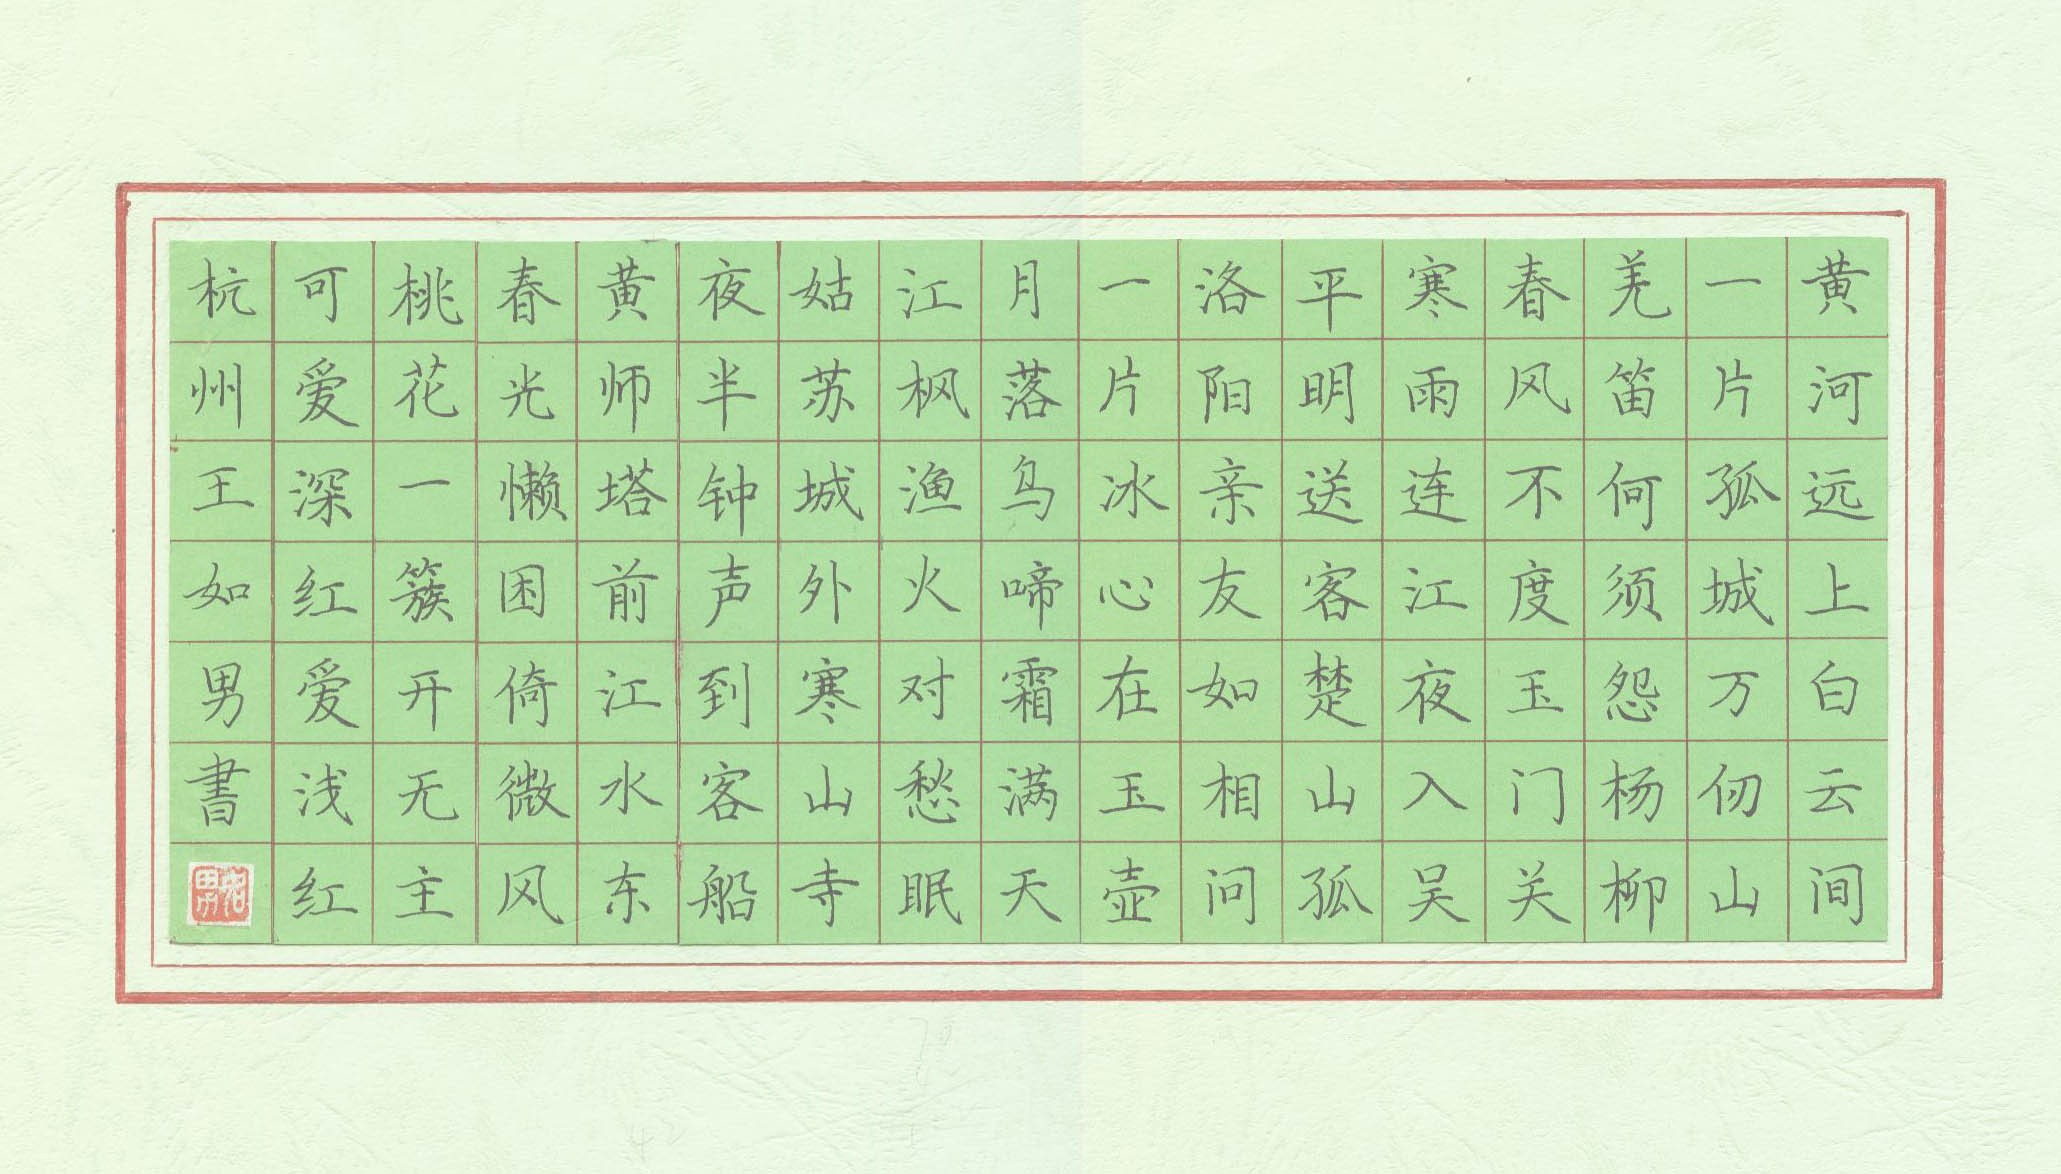 黄河远上白云间
一片孤城万仞山
羌笛何须怨杨柳
春风不度玉门关
寒雨连江夜入吴
平明送客楚山孤
洛阳亲友如相问
一片冰心在玉壶
月落乌啼霜满天
江枫渔火对愁眠
姑苏城外寒山寺
夜半钟声到客船
黄师塔前江水东
春光懒困倚微风
桃花一簇开无主
可爱深红爱浅红
杭州王如男書